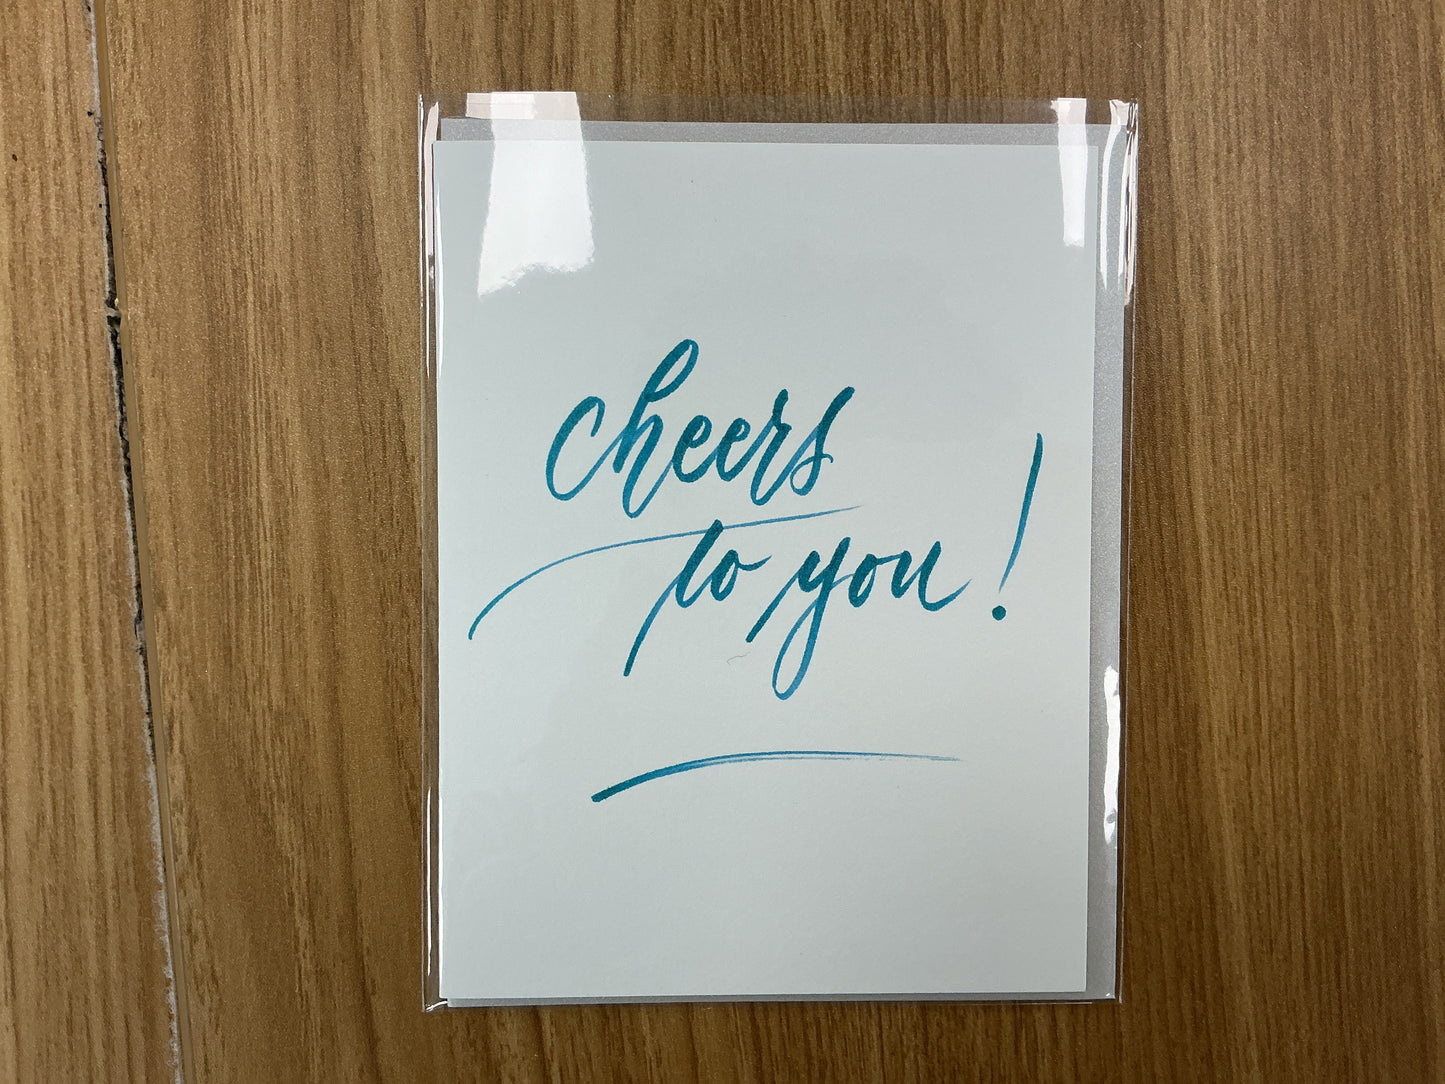 cheers
to you!